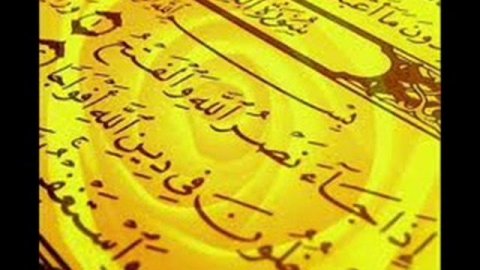 مَا أَعْبُ
سُورَةُ
إِذَا جَآءَ نَصْرُ اللَّهِ وَالْفَتْحُ
خُلُونَ فِي دِينِ اللَّهِ أَفْوَاجًا
وَاسْتَغْفِرْ